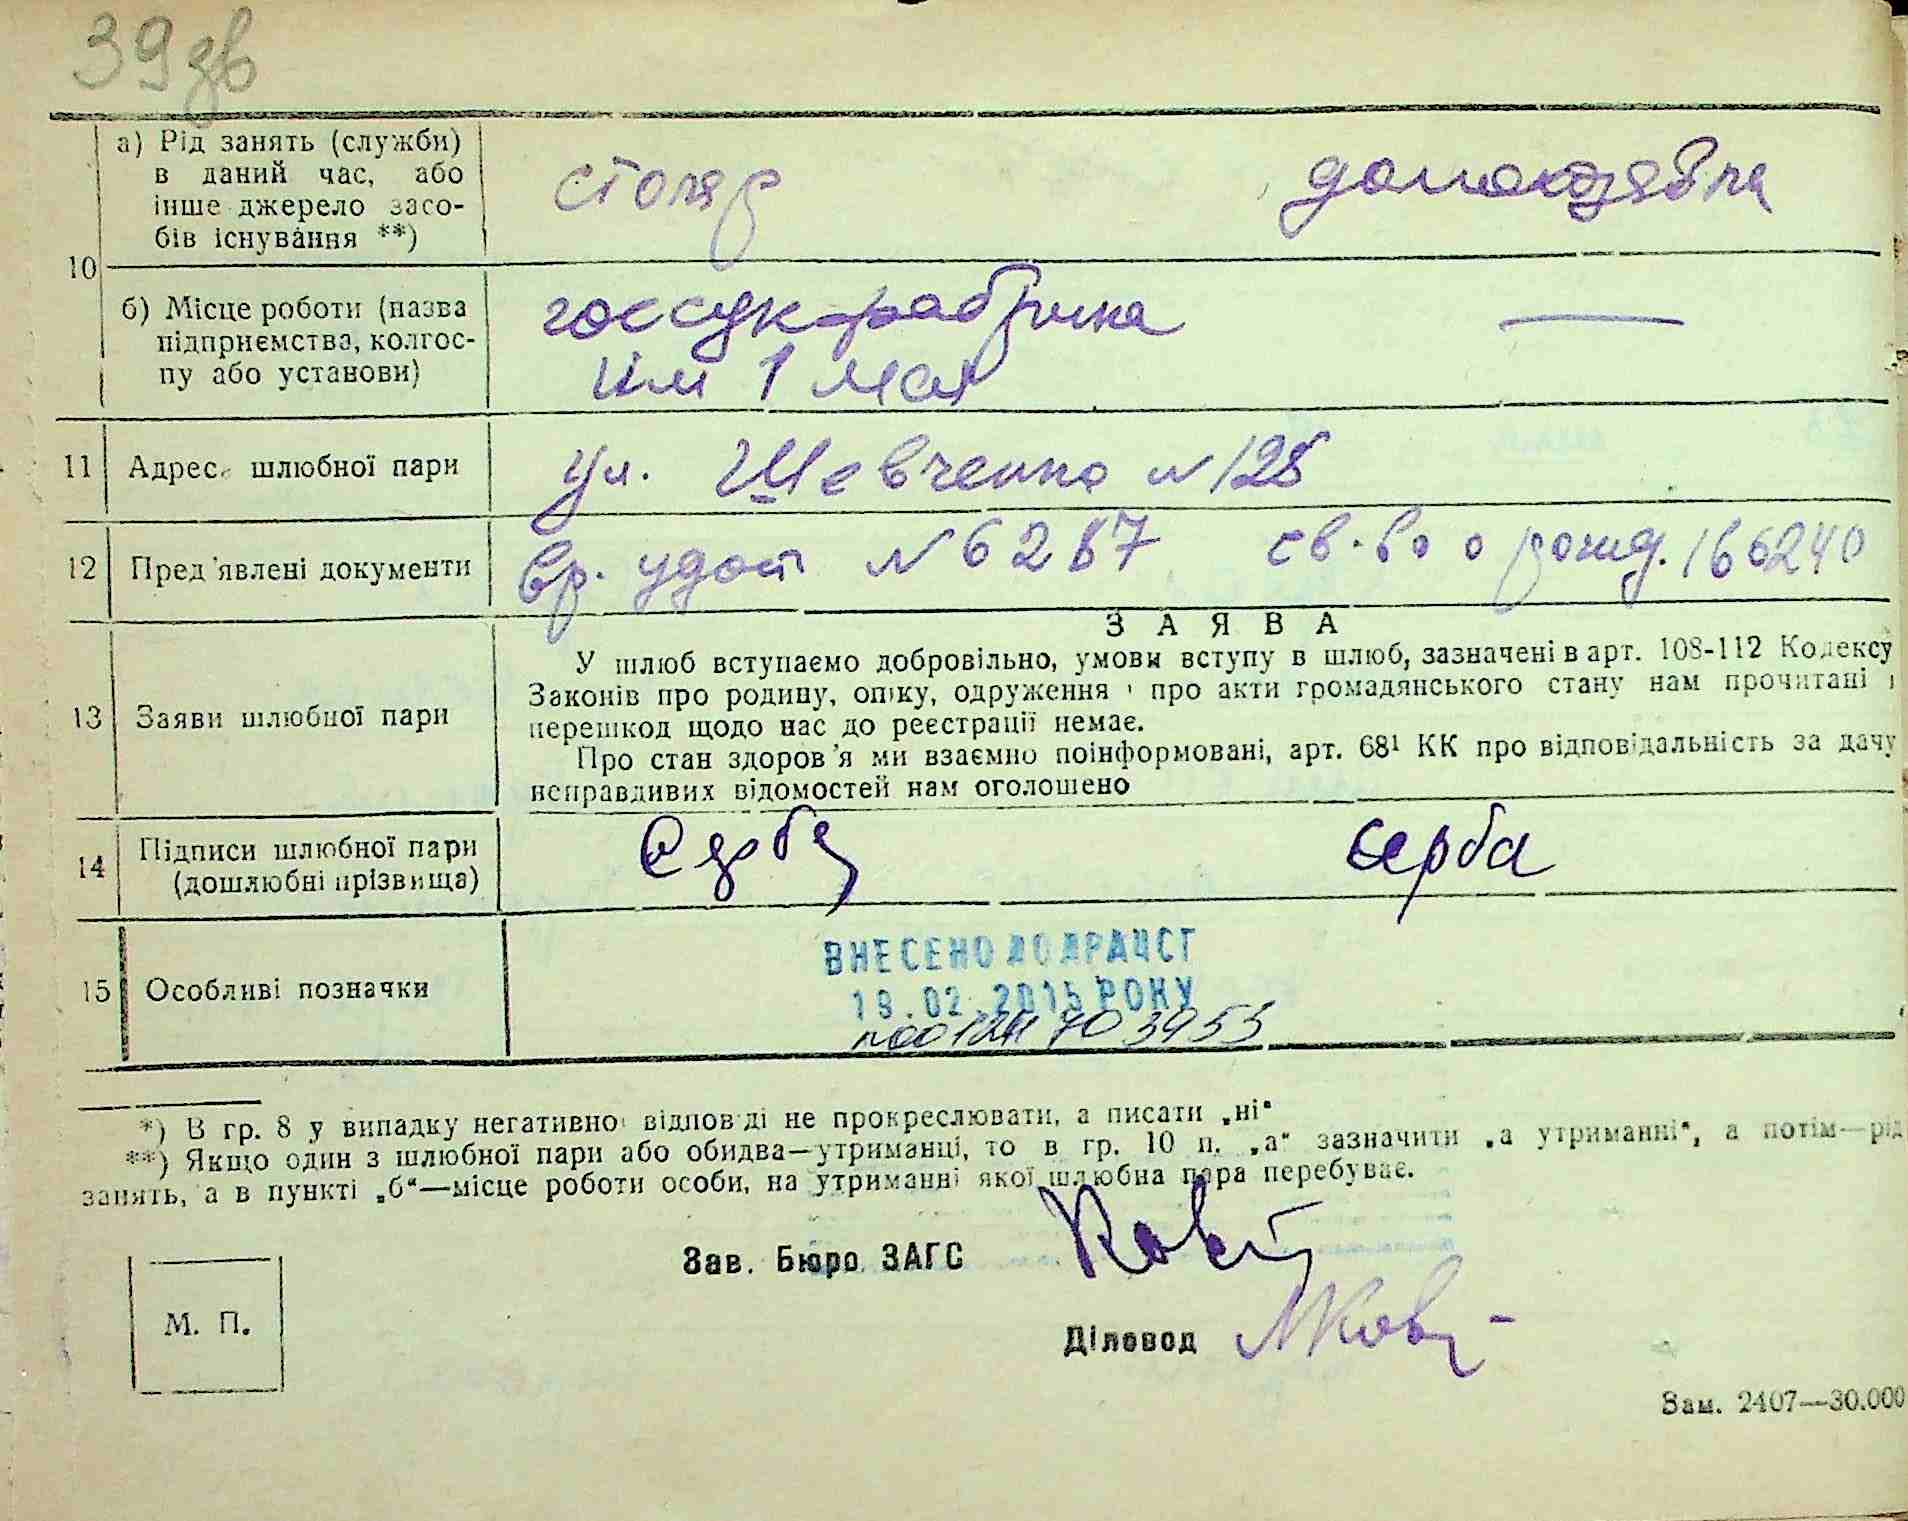 39 зв
а) Рід занять (служби)
в даний час, або
інше джерело засо-
бів існування **)
столяр
домохозяйка
10
б) Місце роботи (назва
підприємства, колгос-
пу або установи)
госсукфабрика
им 1 мая
—
11 Адрес шлюбної пари
ул. Шевченко N 128
12 Пред'явлені документи
вр. удост N 6287
св-во о рожд. 166240
13 Заяви шлюбної пари
ЗАЯВА
У шлюб вступаємо добровільно, умови вступу в шлюб, зазначені в арт. 108-112 Кодексу
Законів про родину, опіку, одруження і про акти громадянського стану нам прочитані і
перешкод щодо нас до реєстрації немає.
Про стан здоров'я ми взаємно поінформовані, арт. 68¹ КК про відповідальність за дачу
неправдивих відомостей нам оголошено
14 Підписи шлюбної пари
(дошлюбні прізвища)
Серба
15 Особливі позначки
ВНЕСЕНО ДО ДРАЦСГ
19.02.2015 РОКУ
*) В гр. 8 у випадку негативної відповіді не прокреслювати, а писати „ні“
**) Якщо один з шлюбної пари або обидва—утриманці, то в гр. 10 п. „а“ зазначити „а утриманні“, а потім—рід
занять, а в пункті „б“—місце роботи особи, на утриманні якої шлюбна пара перебуває.
Зав. Бюро ЗАГС
Діловод
М. П.
Зам. 2407—30.000